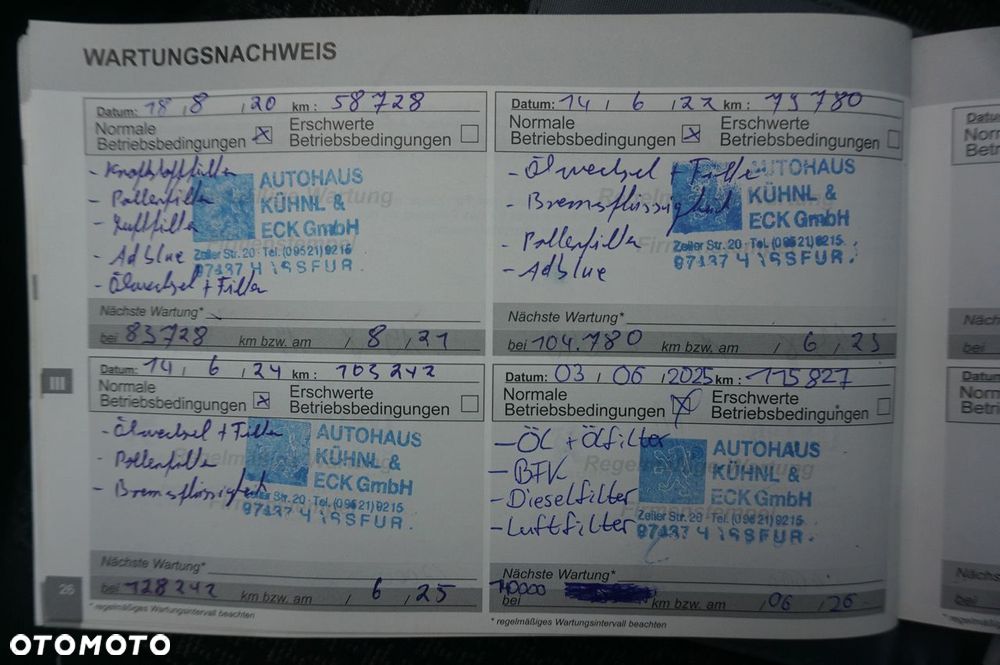 WARTUNGSNACHWEIS
Datum: 18 / 8 / 20 km: 58728
Normale Betriebsbedingungen ☒ Erschwerte Betriebsbedingungen ☐
- Kraftstofffilter
- Pollenfilter
- Luftfilter
- Adblue
- Ölwechsel + Filter
AUTOHAUS
KÜHNL &
ECK GmbH
Zeller Str. 20 · Tel. (09521) 9215
97437 H ISSFUR.
Nächste Wartung*
bei 83728 km bzw. am / 8 / 21
Datum: 14 / 6 / 22 km: 79780
Normale Betriebsbedingungen ☒ Erschwerte Betriebsbedingungen ☐
- Ölwechsel + Filter
- Bremsflüssigkeit
- Pollenfilter
- Adblue
AUTOHAUS
KÜHNL &
ECK GmbH
Zeller Str. 20 · Tel. (09521) 9215
97437 H ISSFUR.
Nächste Wartung*
bei 104.780 km bzw. am / 6 / 23
Datum: 14 / 6 / 24 km: 103242
Normale Betriebsbedingungen ☒ Erschwerte Betriebsbedingungen ☐
- Ölwechsel + Filter
- Pollenfilter
- Bremsflüssigkeit
AUTOHAUS
KÜHNL &
ECK GmbH
Zeller Str. 20 · Tel. (09521) 9215
97437 H ISSFUR.
Nächste Wartung*
bei 128242 km bzw. am / 6 / 25
Datum: 03 / 06 / 2025 km: 115827
Normale Betriebsbedingungen ☒ Erschwerte Betriebsbedingungen ☐
- Öl + Ölfilter
- BFK
- Dieselfilter
- Luftfilter
AUTOHAUS
KÜHNL &
ECK GmbH
Zeller Str. 20 · Tel. (09521) 9215
97437 H ISSFUR.
Nächste Wartung*
bei 140000 km bzw. am / 06 / 26
* regelmäßiges Wartungsintervall beachten
* regelmäßiges Wartungsintervall beachten
III
26
OTOMOTO